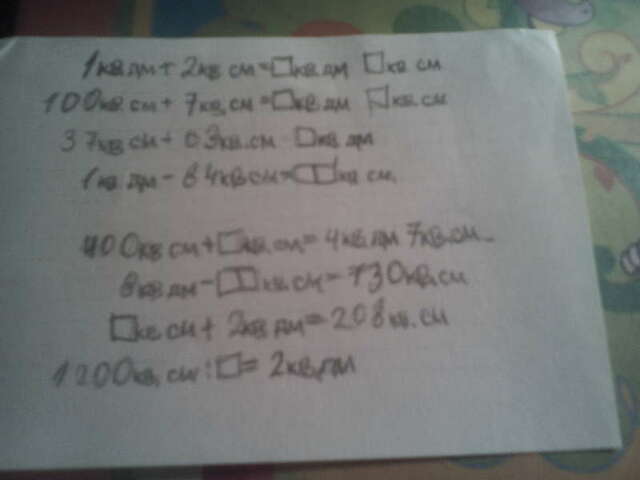 1кв.дм+2кв см=□кв.дм □кв см
100кв.см+7кв.см=□кв.дм □кв.см
37кв см+63кв.см □кв дм
1кв.дм-64кв.см=□□кв см.
400кв см+□кв.см=4кв.дм 7кв.см.
8кв.дм-□□кв.см=730кв.см
□кв.см+2кв.дм=208кв.см
1200кв.см:□=2кв.дм